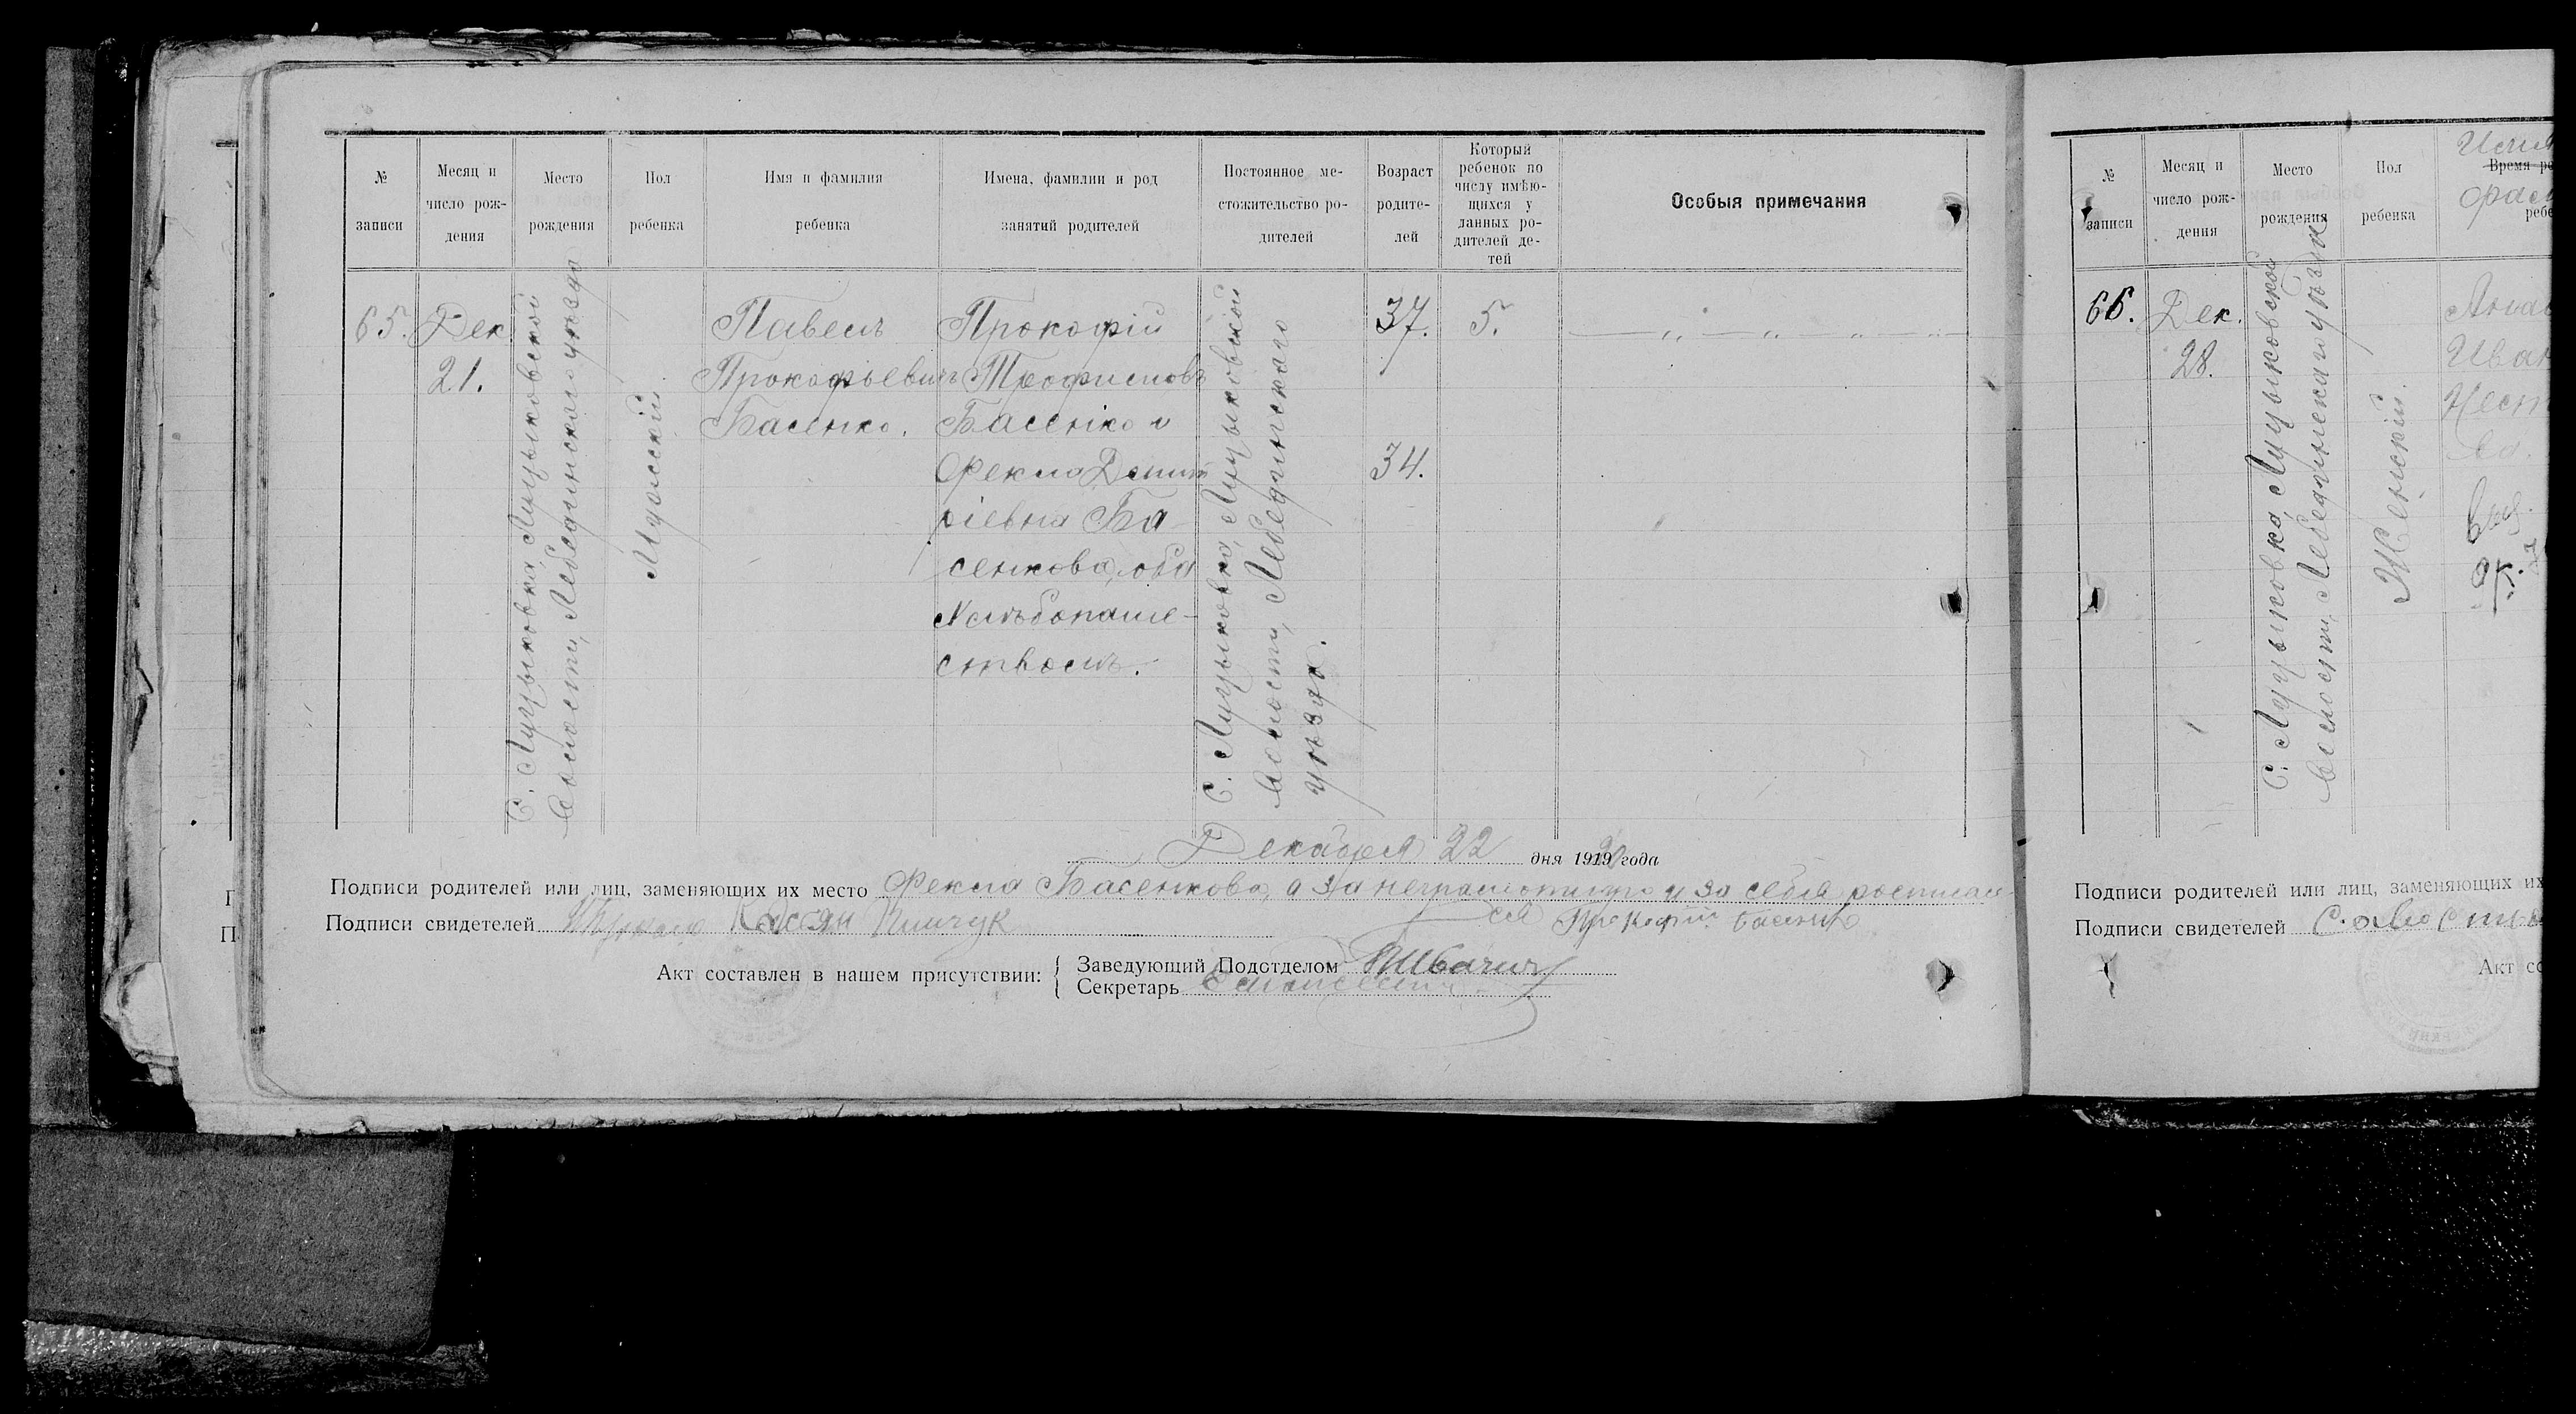 № записи
Месяц и число рож-дения
Место рождения
Пол ребенка
Имя и фамилия ребенка
Имена, фамилии и род занятий родителей
Постоянное ме-стожительство ро-дителей
Возраст родите-лей
Который ребенок по числу имѣю-щихся у данных ро-дителей де-тей
Особыя примечания
65.
Дек
21.
С. Луцыковка, Луцыковской
волости, Лебединского уѣзда
Мужской
Павелъ
Прокофьевичъ
Басенко.
Прокофій
Трофимовъ
Басенко и
Фекла Дмит
ріевна Ба
сенкова, оба
хлѣбопаше-
ствомъ.
С. Луцыковка, Луцыковской
волости, Лебединского
уѣзда.
37.
34.
5.
Декабря 22 дня 1919 года
Подписи родителей или лиц, заменяющих их место Фекла Басенкова, а за неграмотную и за себя росписал
ся Прокофій Басенко
Подписи свидетелей Касян
Акт составлен в нашем присутствии:
Заведующий Подотделом
Секретарь
№ записи
Месяц и число рож-дения
Место рождения
Пол ребенка
Время р
ребе
66.
Дек.
28.
С. Луцыковка, Луцыковской
волости, Лебединского уѣзда
Женский.
Иван
Нест
ва.
Подписи родителей или лиц, заменяющих их
Подписи свидетелей
Акт со